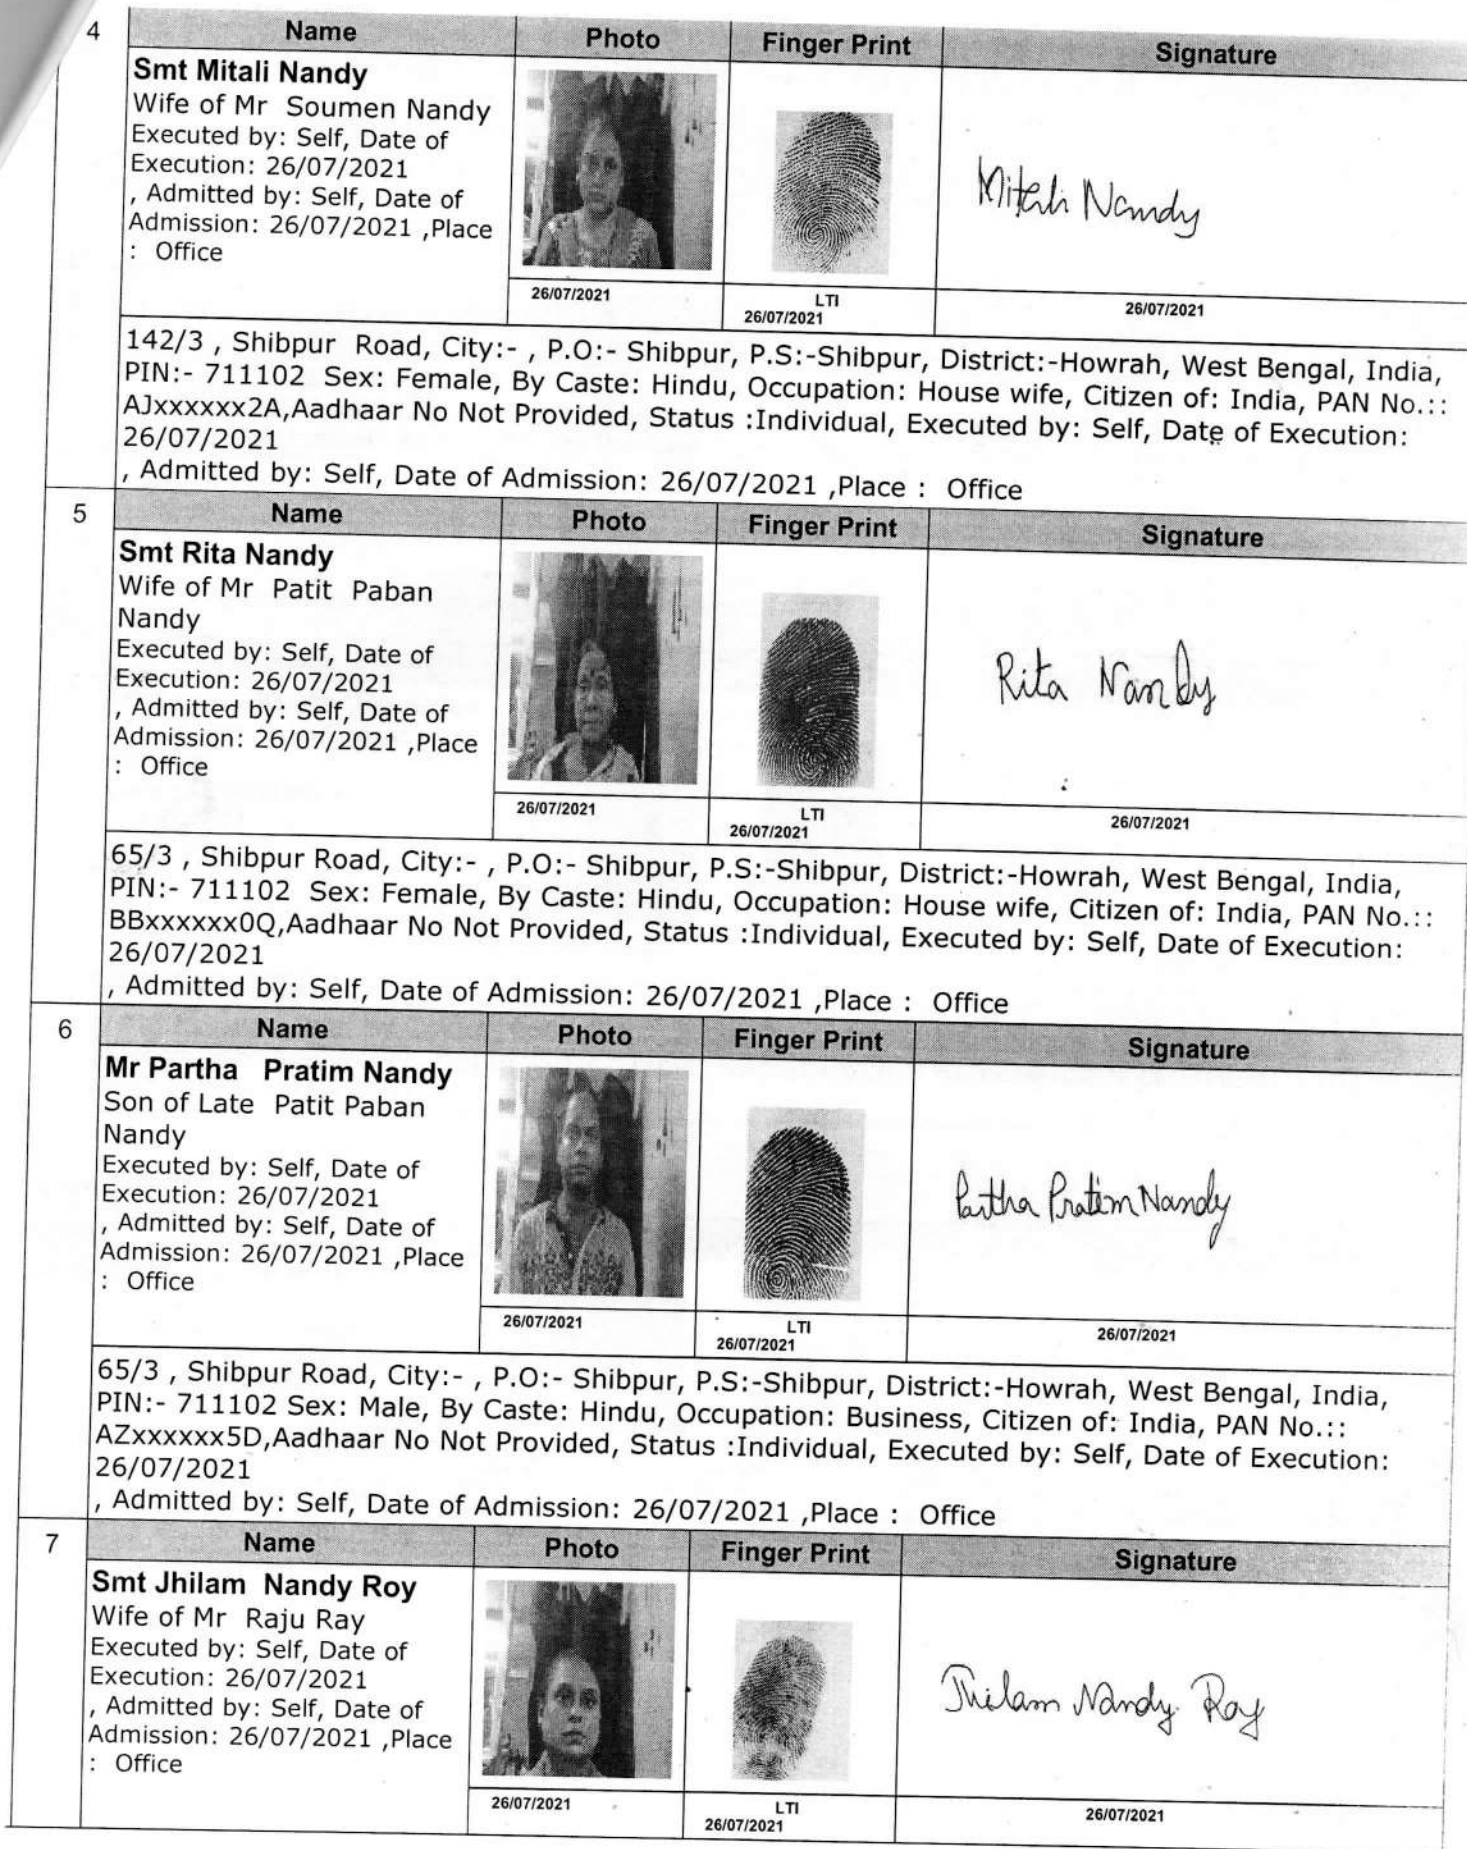 4 Name Photo Finger Print Signature
Smt Mitali Nandy
Wife of Mr Soumen Nandy
Executed by: Self, Date of
Execution: 26/07/2021
, Admitted by: Self, Date of
Admission: 26/07/2021 ,Place
: Office
Mitali Nandy
26/07/2021
LTI
26/07/2021
26/07/2021
142/3 , Shibpur Road, City:- , P.O:- Shibpur, P.S:-Shibpur, District:-Howrah, West Bengal, India,
PIN:- 711102 Sex: Female, By Caste: Hindu, Occupation: House wife, Citizen of: India, PAN No.::
AJxxxxxx2A,Aadhaar No Not Provided, Status :Individual, Executed by: Self, Date of Execution:
26/07/2021
, Admitted by: Self, Date of Admission: 26/07/2021 ,Place : Office
5 Name Photo Finger Print Signature
Smt Rita Nandy
Wife of Mr Patit Paban
Nandy
Executed by: Self, Date of
Execution: 26/07/2021
, Admitted by: Self, Date of
Admission: 26/07/2021 ,Place
: Office
Rita Nandy
26/07/2021
LTI
26/07/2021
26/07/2021
65/3 , Shibpur Road, City:- , P.O:- Shibpur, P.S:-Shibpur, District:-Howrah, West Bengal, India,
PIN:- 711102 Sex: Female, By Caste: Hindu, Occupation: House wife, Citizen of: India, PAN No.::
BBxxxxxx0Q,Aadhaar No Not Provided, Status :Individual, Executed by: Self, Date of Execution:
26/07/2021
, Admitted by: Self, Date of Admission: 26/07/2021 ,Place : Office
6 Name Photo Finger Print Signature
Mr Partha Pratim Nandy
Son of Late Patit Paban
Nandy
Executed by: Self, Date of
Execution: 26/07/2021
, Admitted by: Self, Date of
Admission: 26/07/2021 ,Place
: Office
Partha Pratim Nandy
26/07/2021
LTI
26/07/2021
26/07/2021
65/3 , Shibpur Road, City:- , P.O:- Shibpur, P.S:-Shibpur, District:-Howrah, West Bengal, India,
PIN:- 711102 Sex: Male, By Caste: Hindu, Occupation: Business, Citizen of: India, PAN No.::
AZxxxxxx5D,Aadhaar No Not Provided, Status :Individual, Executed by: Self, Date of Execution:
26/07/2021
, Admitted by: Self, Date of Admission: 26/07/2021 ,Place : Office
7 Name Photo Finger Print Signature
Smt Jhilam Nandy Roy
Wife of Mr Raju Ray
Executed by: Self, Date of
Execution: 26/07/2021
, Admitted by: Self, Date of
Admission: 26/07/2021 ,Place
: Office
Jhilam Nandy Roy
26/07/2021
LTI
26/07/2021
26/07/2021